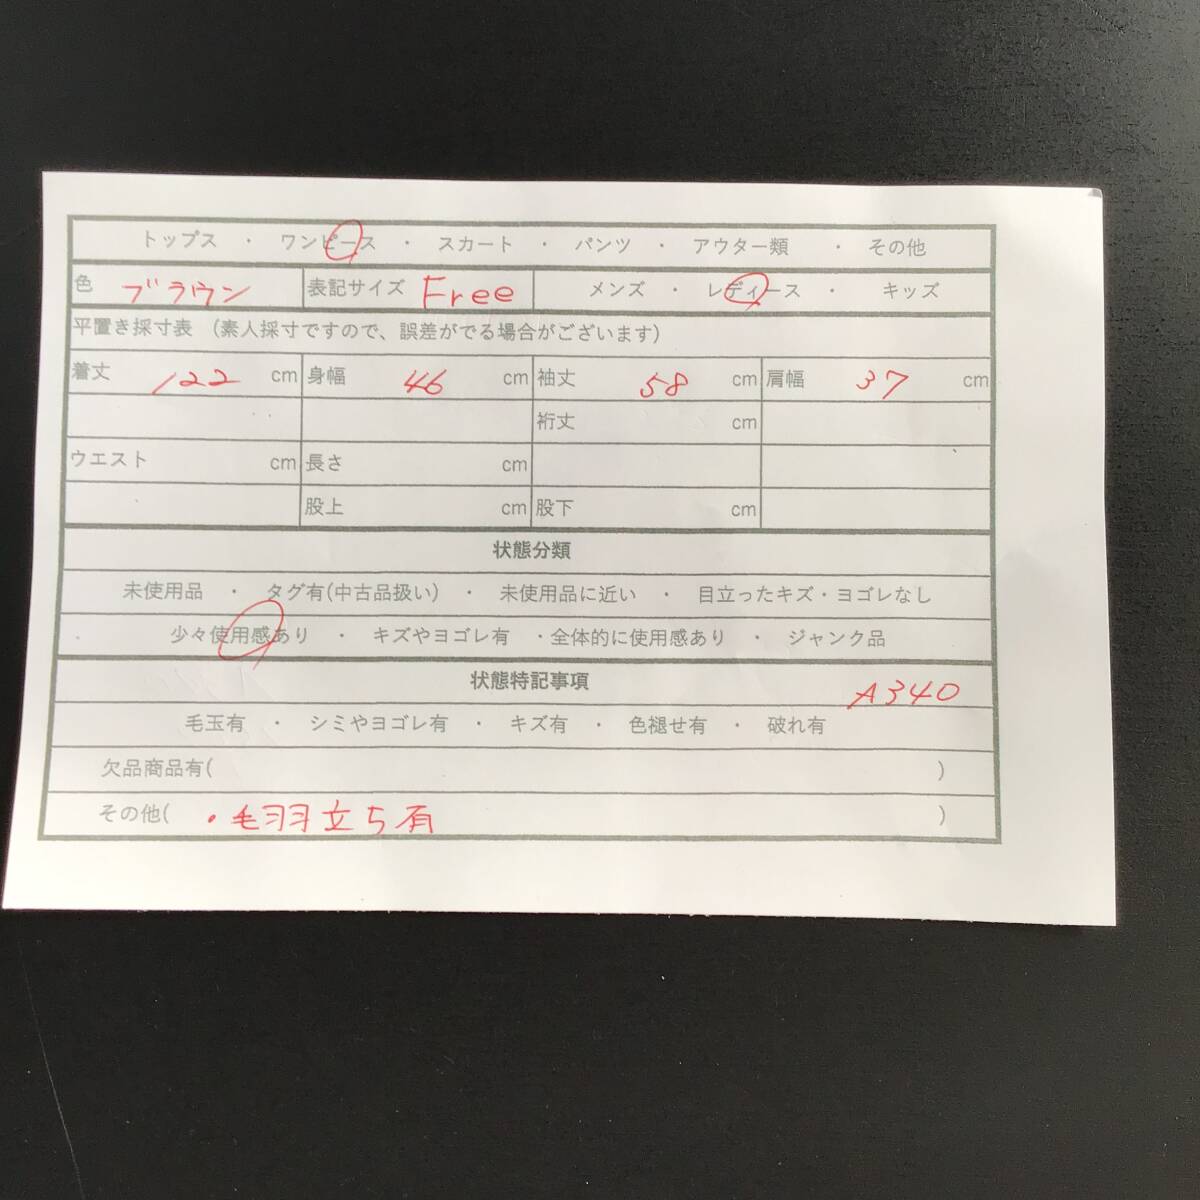 トップス ・ ワンピース ・ スカート ・ パンツ ・ アウター類 ・ その他
色 ブラウン 表記サイズ Free メンズ ・ レディース ・ キッズ
平置き採寸表 (素人採寸ですので、誤差がでる場合がございます)
着丈 122 cm 身幅 46 cm 袖丈 58 cm 肩幅 37 cm
裄丈 cm
ウエスト cm 長さ cm
股上 cm 股下 cm
状態分類
未使用品 ・ タグ有(中古品扱い) ・ 未使用品に近い ・ 目立ったキズ・ヨゴレなし
少々使用感あり ・ キズやヨゴレ有 ・全体的に使用感あり ・ ジャンク品
状態特記事項 A340
毛玉有 ・ シミやヨゴレ有 ・ キズ有 ・ 色褪せ有 ・ 破れ有
欠品商品有( )
その他( ・毛羽立ち有 )